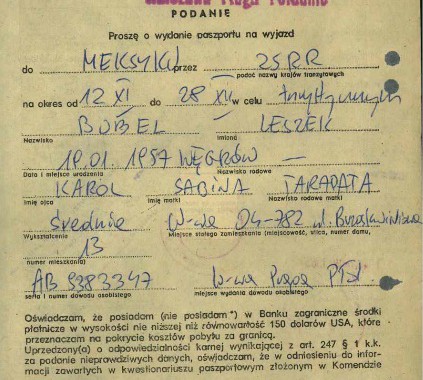 PODANIE
Proszę o wydanie paszportu na wyjazd
do MEKSYKU przez ZSRR
podać nazwy krajów tranzytowych
na okres od 12 XI do 28 XII w celu turystycznym
BUBEL LESZEK
Nazwisko Imiona
19.01.1957 WĘGRÓW —
Data i miejsce urodzenia Nazwisko rodowe
KAROL SABINA TARAPATA
Imię ojca Imię matki Nazwisko rodowe matki
średnie W-wa 04-782 ul.
Wykształcenie Miejsce stałego zamieszkania (miejscowość, ulica, numer domu,
13
numer mieszkania)
AB 9383347 W-wa Praga Płd
seria i numer dowodu osobistego miejsce wydania dowodu osobistego
Oświadczam, że posiadam (nie posiadam*) w Banku zagraniczne środki
płatnicze w wysokości nie niższej niż równowartość 150 dolarów USA, które
przeznaczam na pokrycie kosztów pobytu za granicą.
Uprzedzony(a) o odpowiedzialności karnej wynikającej z art. 247 § 1 k.k.
za podanie nieprawdziwych danych, oświadczam, że w odniesieniu do infor-
macji zawartych w kwestionariuszu paszportowym złożonym w Komendzie